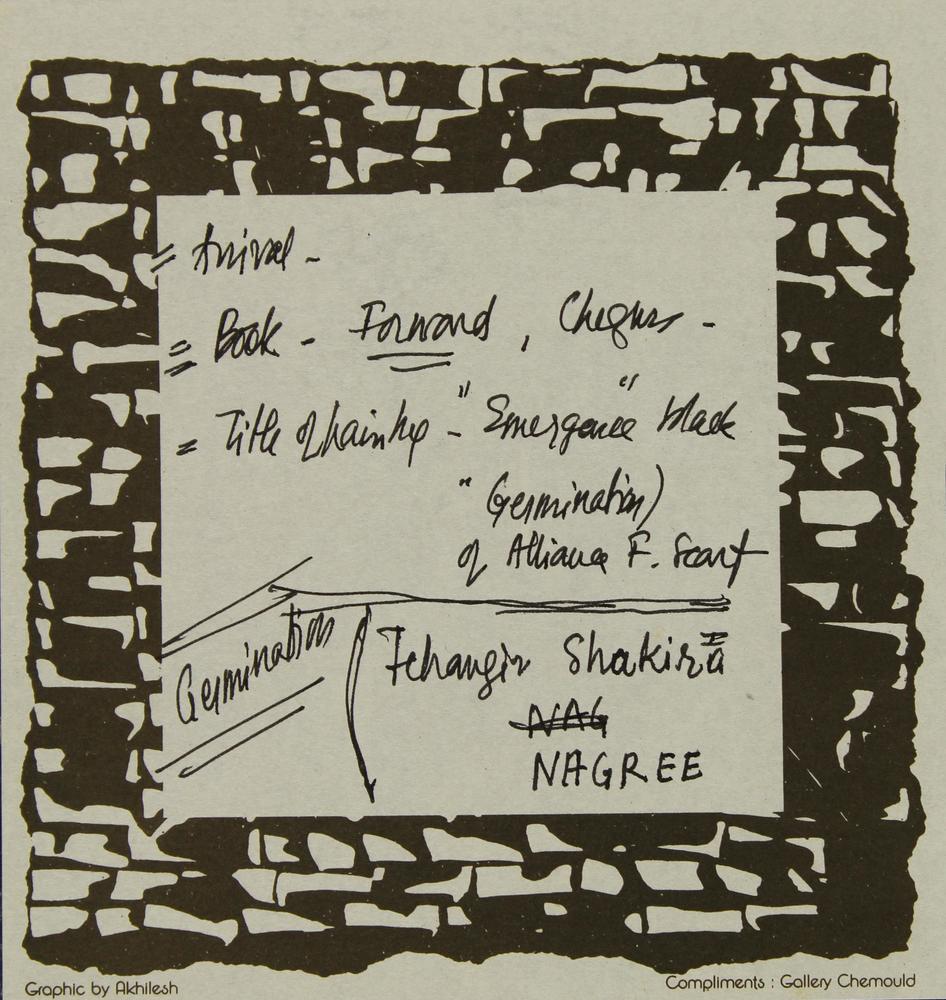 = Arrival -
= Book - Forward , Cheques -
= Title of painting - "Emergence" black
" Germination)
of Alliance F. Scarf
Germination
Jehangir Shakira
NAG
NAGREE
Graphic by Akhilesh
Compliments : Gallery Chemould